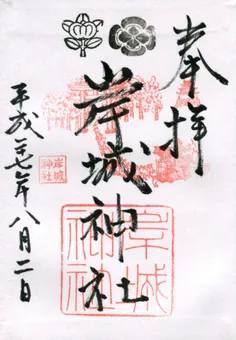 奉拝
岸城神社
平成二十七年八月二日
岸城
神社
岸城
神社